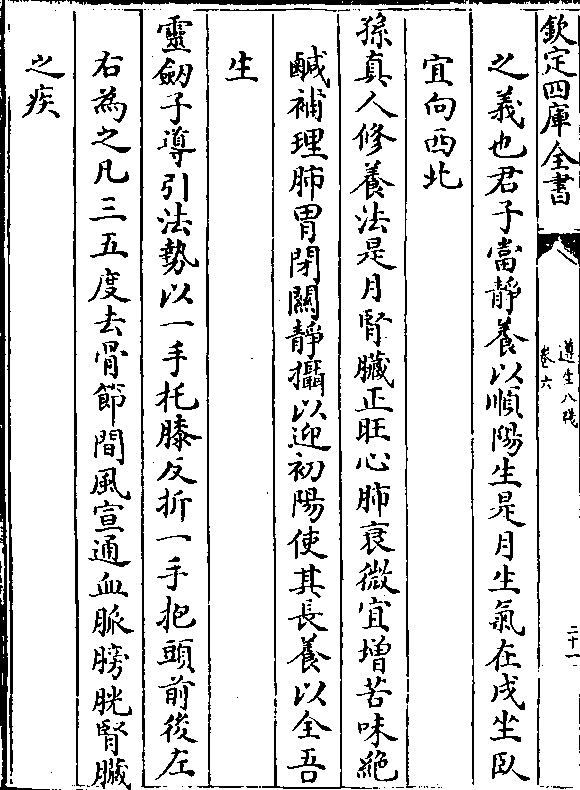 欽定四庫全書
遵生八牋
卷六
二十一
之義也君子當靜養以順陽生是月生氣在戌坐臥
宜向西北
孫真人修養法是月腎臟正旺心肺衰微宜增苦味絶
鹹補理肺胃閉關靜攝以迎初陽使其長養以全吾
生
靈劒子導引法勢以一手托膝反折一手把頭前後左
右為之凡三五度去骨節間風宣通血脈膀胱腎臟
之疾